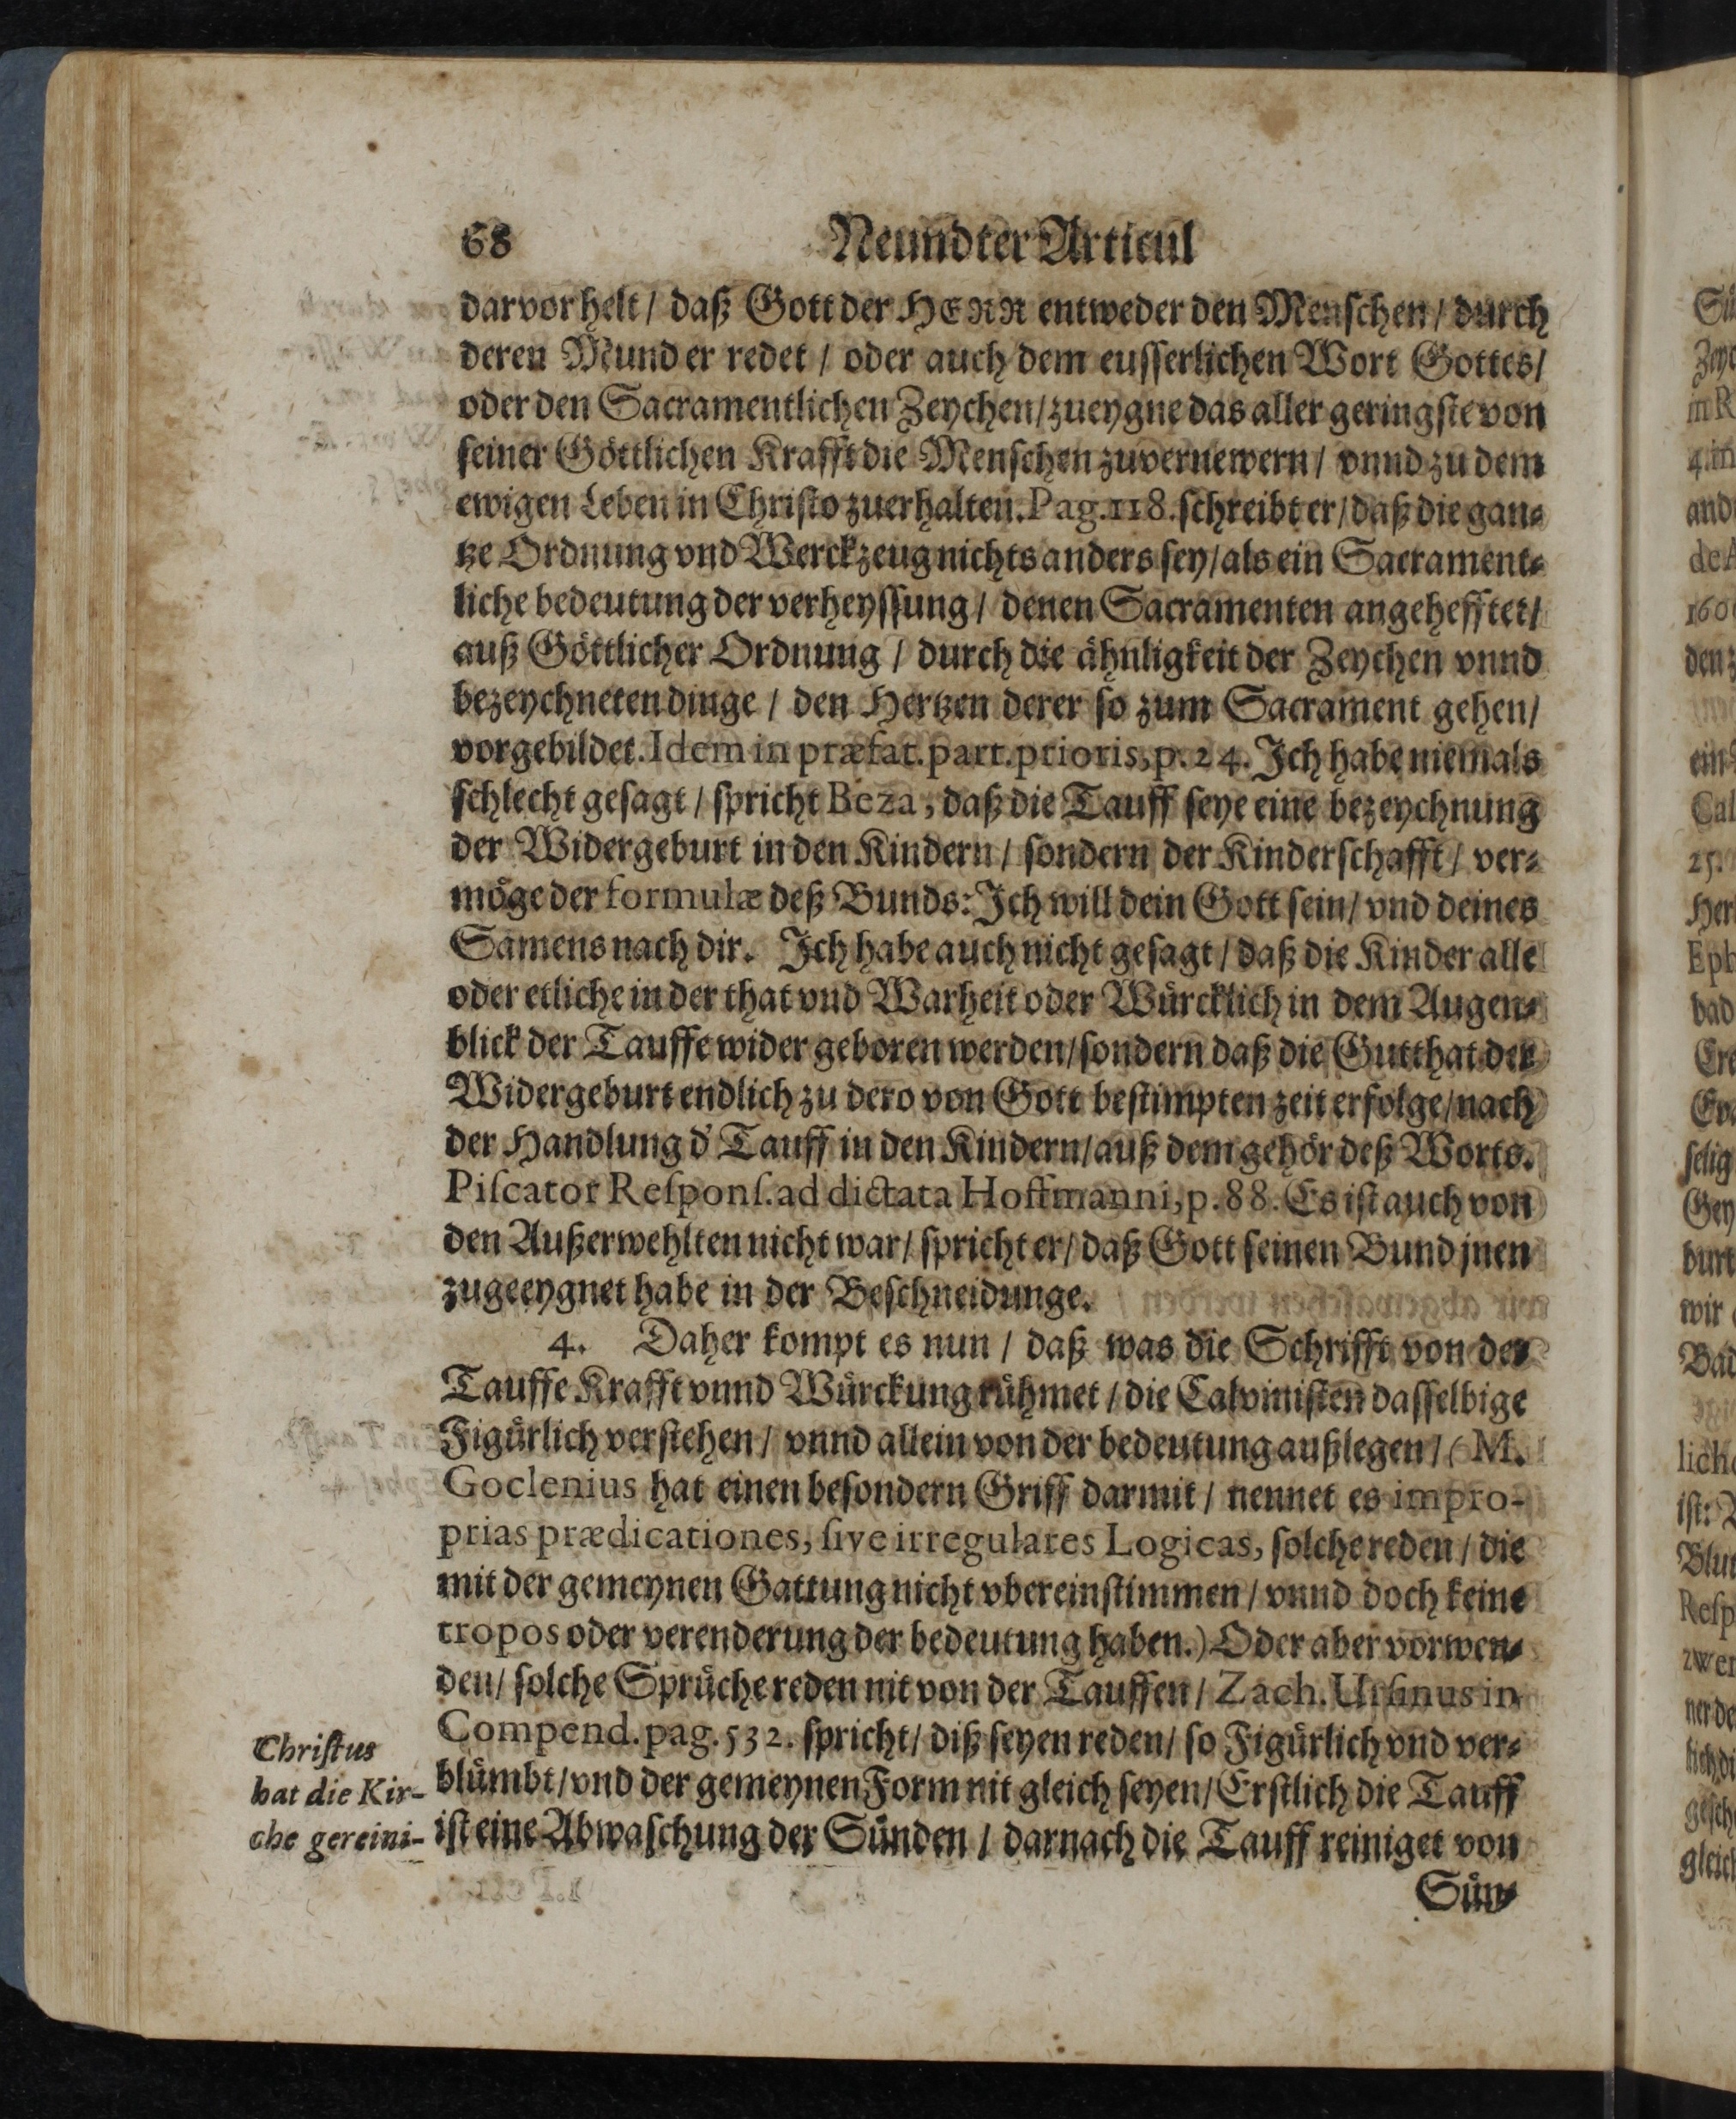 68 Neundter Articul
darvor helt / daß Gott der HERR entweder den Menschen / durch
deren Mund er redet / oder auch dem eusserlichen Wort Gottes /
oder den Sacramentlichen Zeychen / zueygne das aller geringste von
seiner Göttlichen Krafft die Menschen zuvernewern / vnnd zu dem
ewigen Leben in Christo zuerhalten. Pag. 118. schreibt er / daß die gan-
tze Ordnung vnd Werckzeug nichts anders sey / als ein Sacrament-
liche bedeutung der verheyssung / denen Sacramenten angehefftet /
auß Göttlicher Ordnung / durch die ähnligkeit der Zeychen vnnd
bezeychneten dinge / den Hertzen derer so zum Sacrament gehen /
vorgebildet. Idem in præfat. part. prioris, p. 24. Ich habe niemals
schlecht gesagt / spricht Beza, daß die Tauff seye eine bezeychnung
der Widergeburt in den Kindern / sondern der Kinderschafft / ver-
möge der formulæ deß Bunds: Ich will dein Gott sein / vnd deines
Samens nach dir. Ich habe auch nicht gesagt / daß die Kinder alle
oder etliche in der that vnd Warheit oder Würcklich in dem Augen-
blick der Tauffe wider geboren werden / sondern daß die Gutthat der
Widergeburt endlich zu dero von Gott bestimpten zeit erfolge / nach
der Handlung d' Tauff in den Kindern / auß dem gehör deß Worts.
Piſcator Reſponſ. ad dictata Hoffmanni, p. 88. Es ist auch von
den Außerwehlten nicht war / spricht er / daß Gott seinen Bund jnen
zugeeygnet habe in der Beschneidunge.
4. Daher kompt es nun / daß was die Schrifft von der
Tauffe Krafft vnnd Würckung rühmet / die Calvinisten dasselbige
Figürlich verstehen / vnnd allein von der bedeutung außlegen / (M.
Goclenius hat einen besondern Griff darmit / nennet es impro-
prias prædicationes, ſive irregulares Logicas, solche reden / die
mit der gemeynen Gattung nicht vbereinstimmen / vnnd doch keine
tropos oder verenderung der bedeutung haben.) Oder aber vorwen-
den / solche Sprüche reden nit von der Tauffen / Zach. Urſinus in
Compend. pag. 532. spricht / diß seyen reden / so Figürlich vnd ver-
blümbt / vnd der gemeynen Form nit gleich seyen / Erstlich die Tauff
ist eine Abwaschung der Sünden / darnach die Tauff reiniget von
Sün-
Chriſtus
hat die Kir-
che gereini-